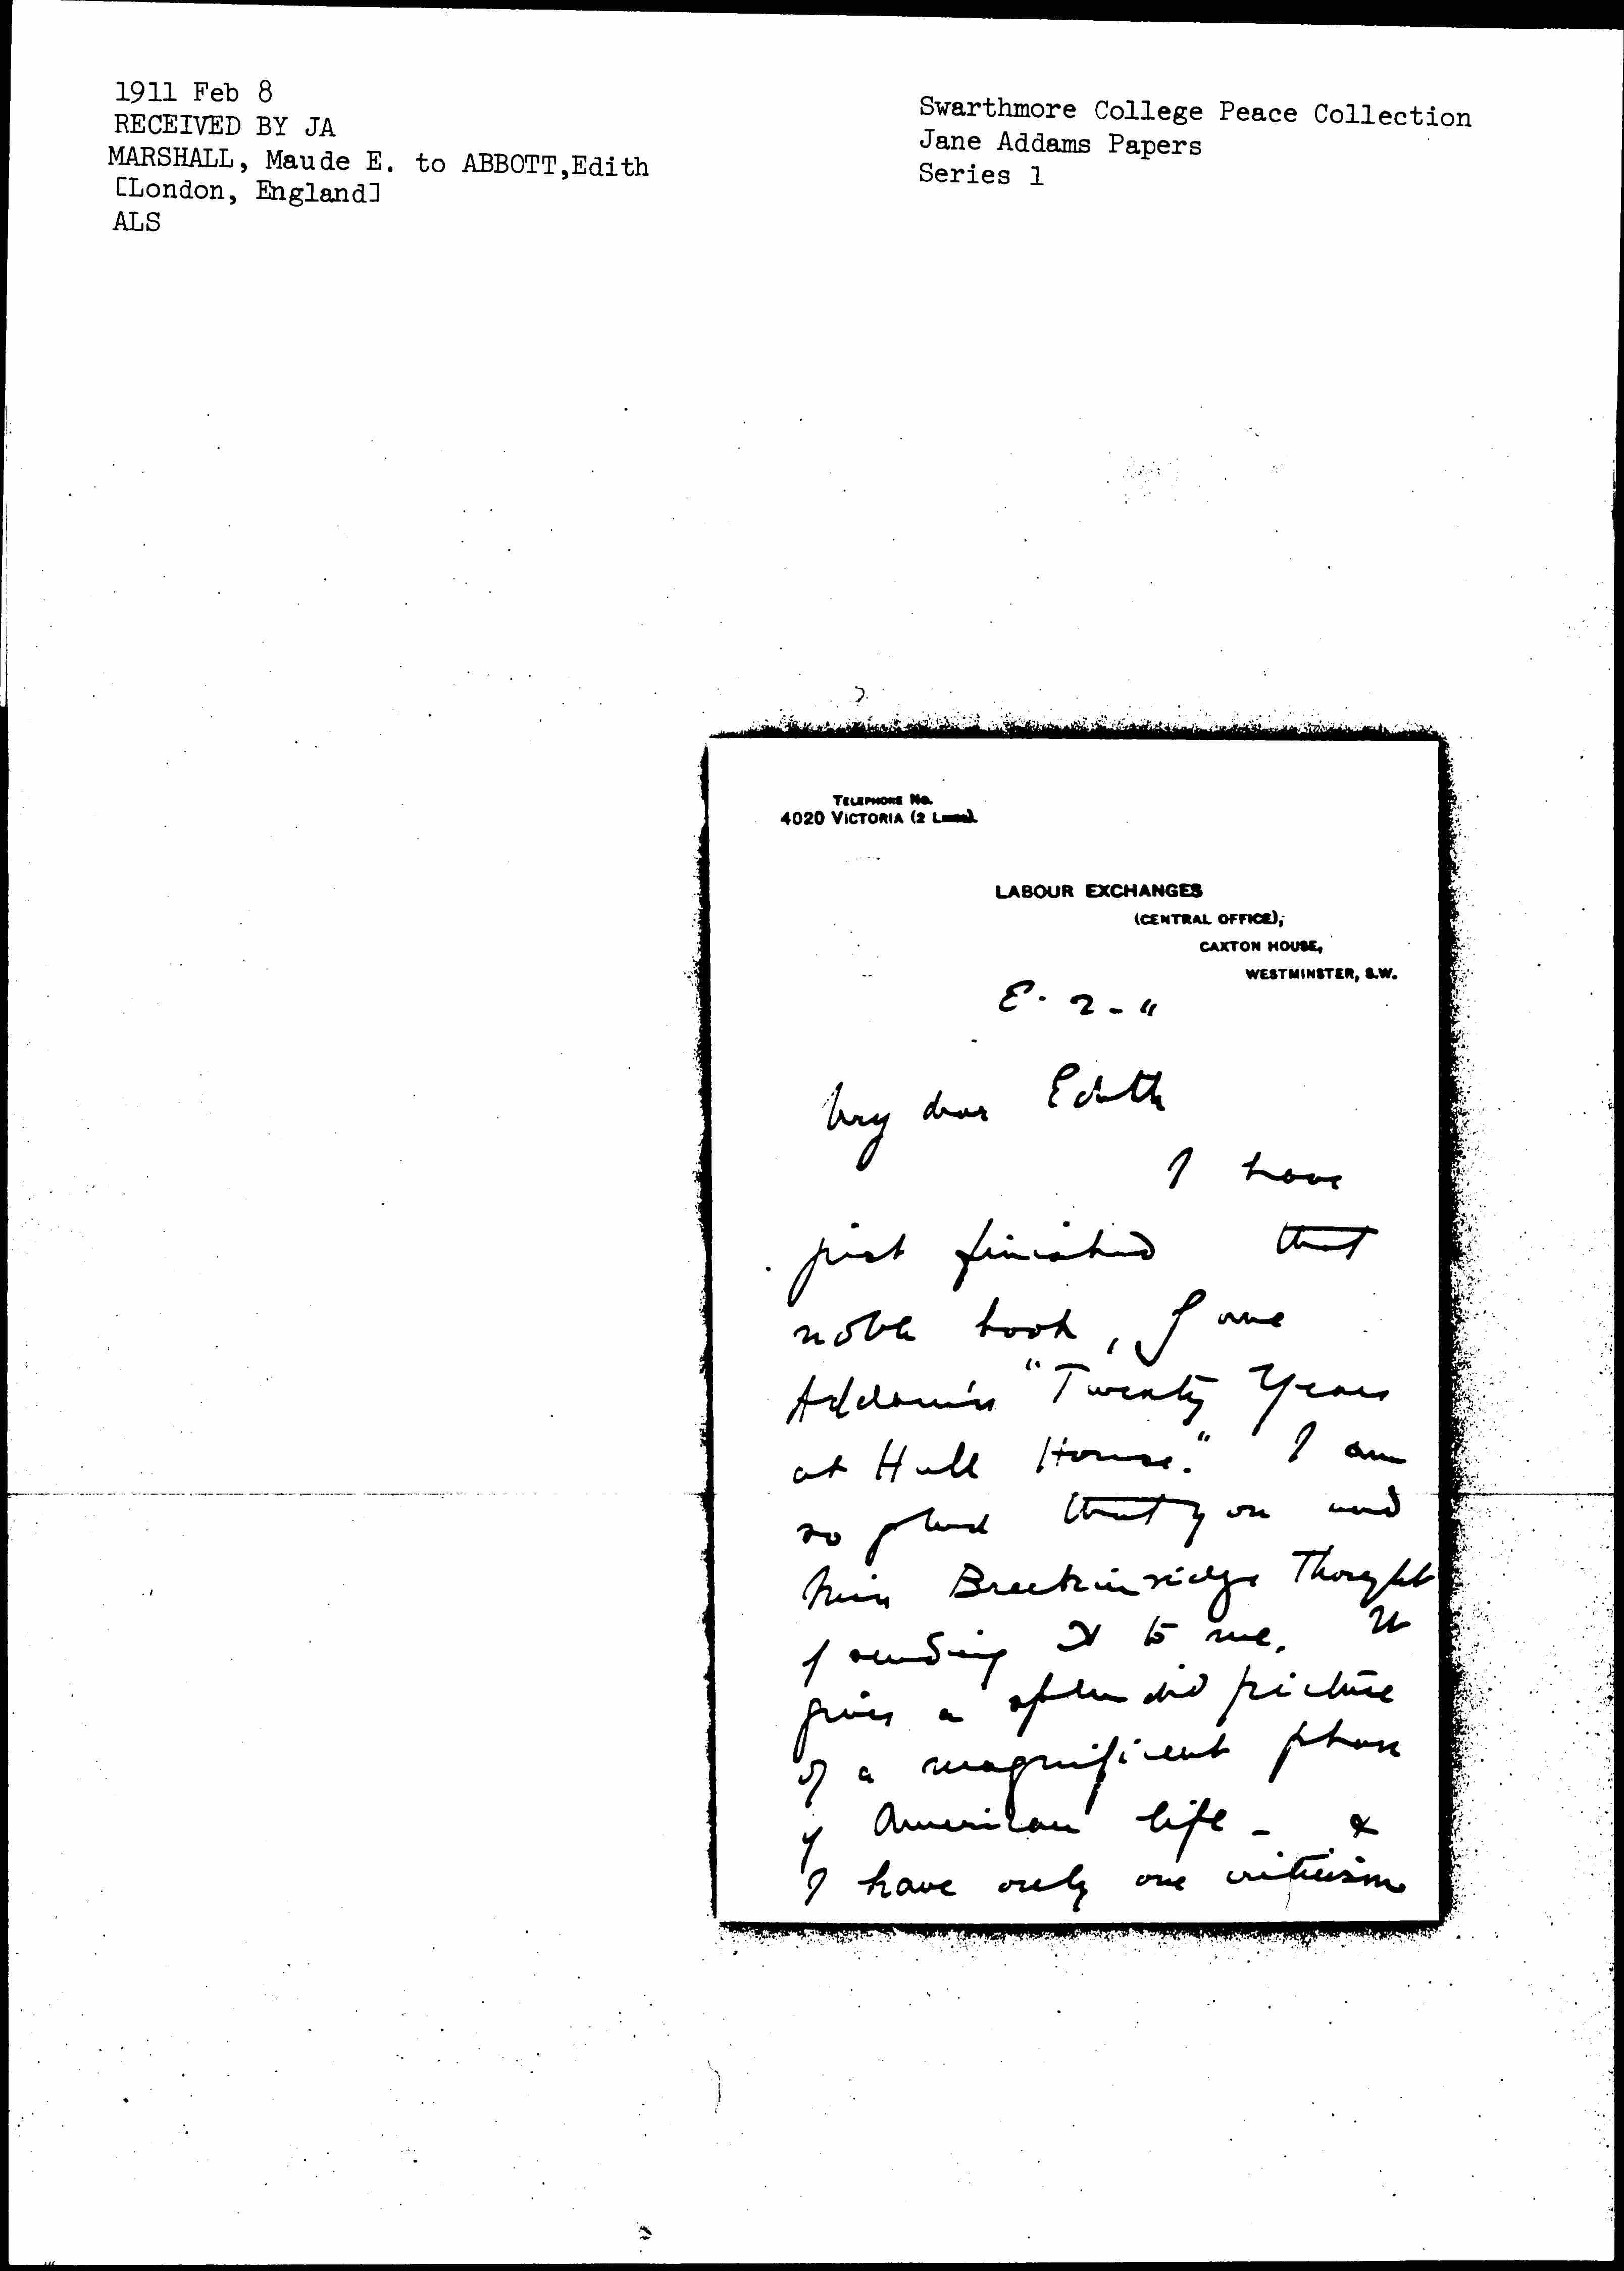 1911 Feb 8
RECEIVED BY JA
MARSHALL, Maude E. to ABBOTT,Edith
[London, England]
ALS
Swarthmore College Peace Collection
Jane Addams Papers
Series 1
TELEPHONE No.
4020 VICTORIA (2 LINES).
LABOUR EXCHANGES
(CENTRAL OFFICE),
CAXTON HOUSE,
WESTMINSTER, S.W.
8. 2 - 11
My dear Edith
I have
just finished that
noble book, Jane
Addams's "Twenty Years
at Hull House." I am
so glad that you and
Miss Breckinridge Thought
of sending it to me. It
gives a splendid picture
of a magnificent phase
of American life - &
I have only one criticism